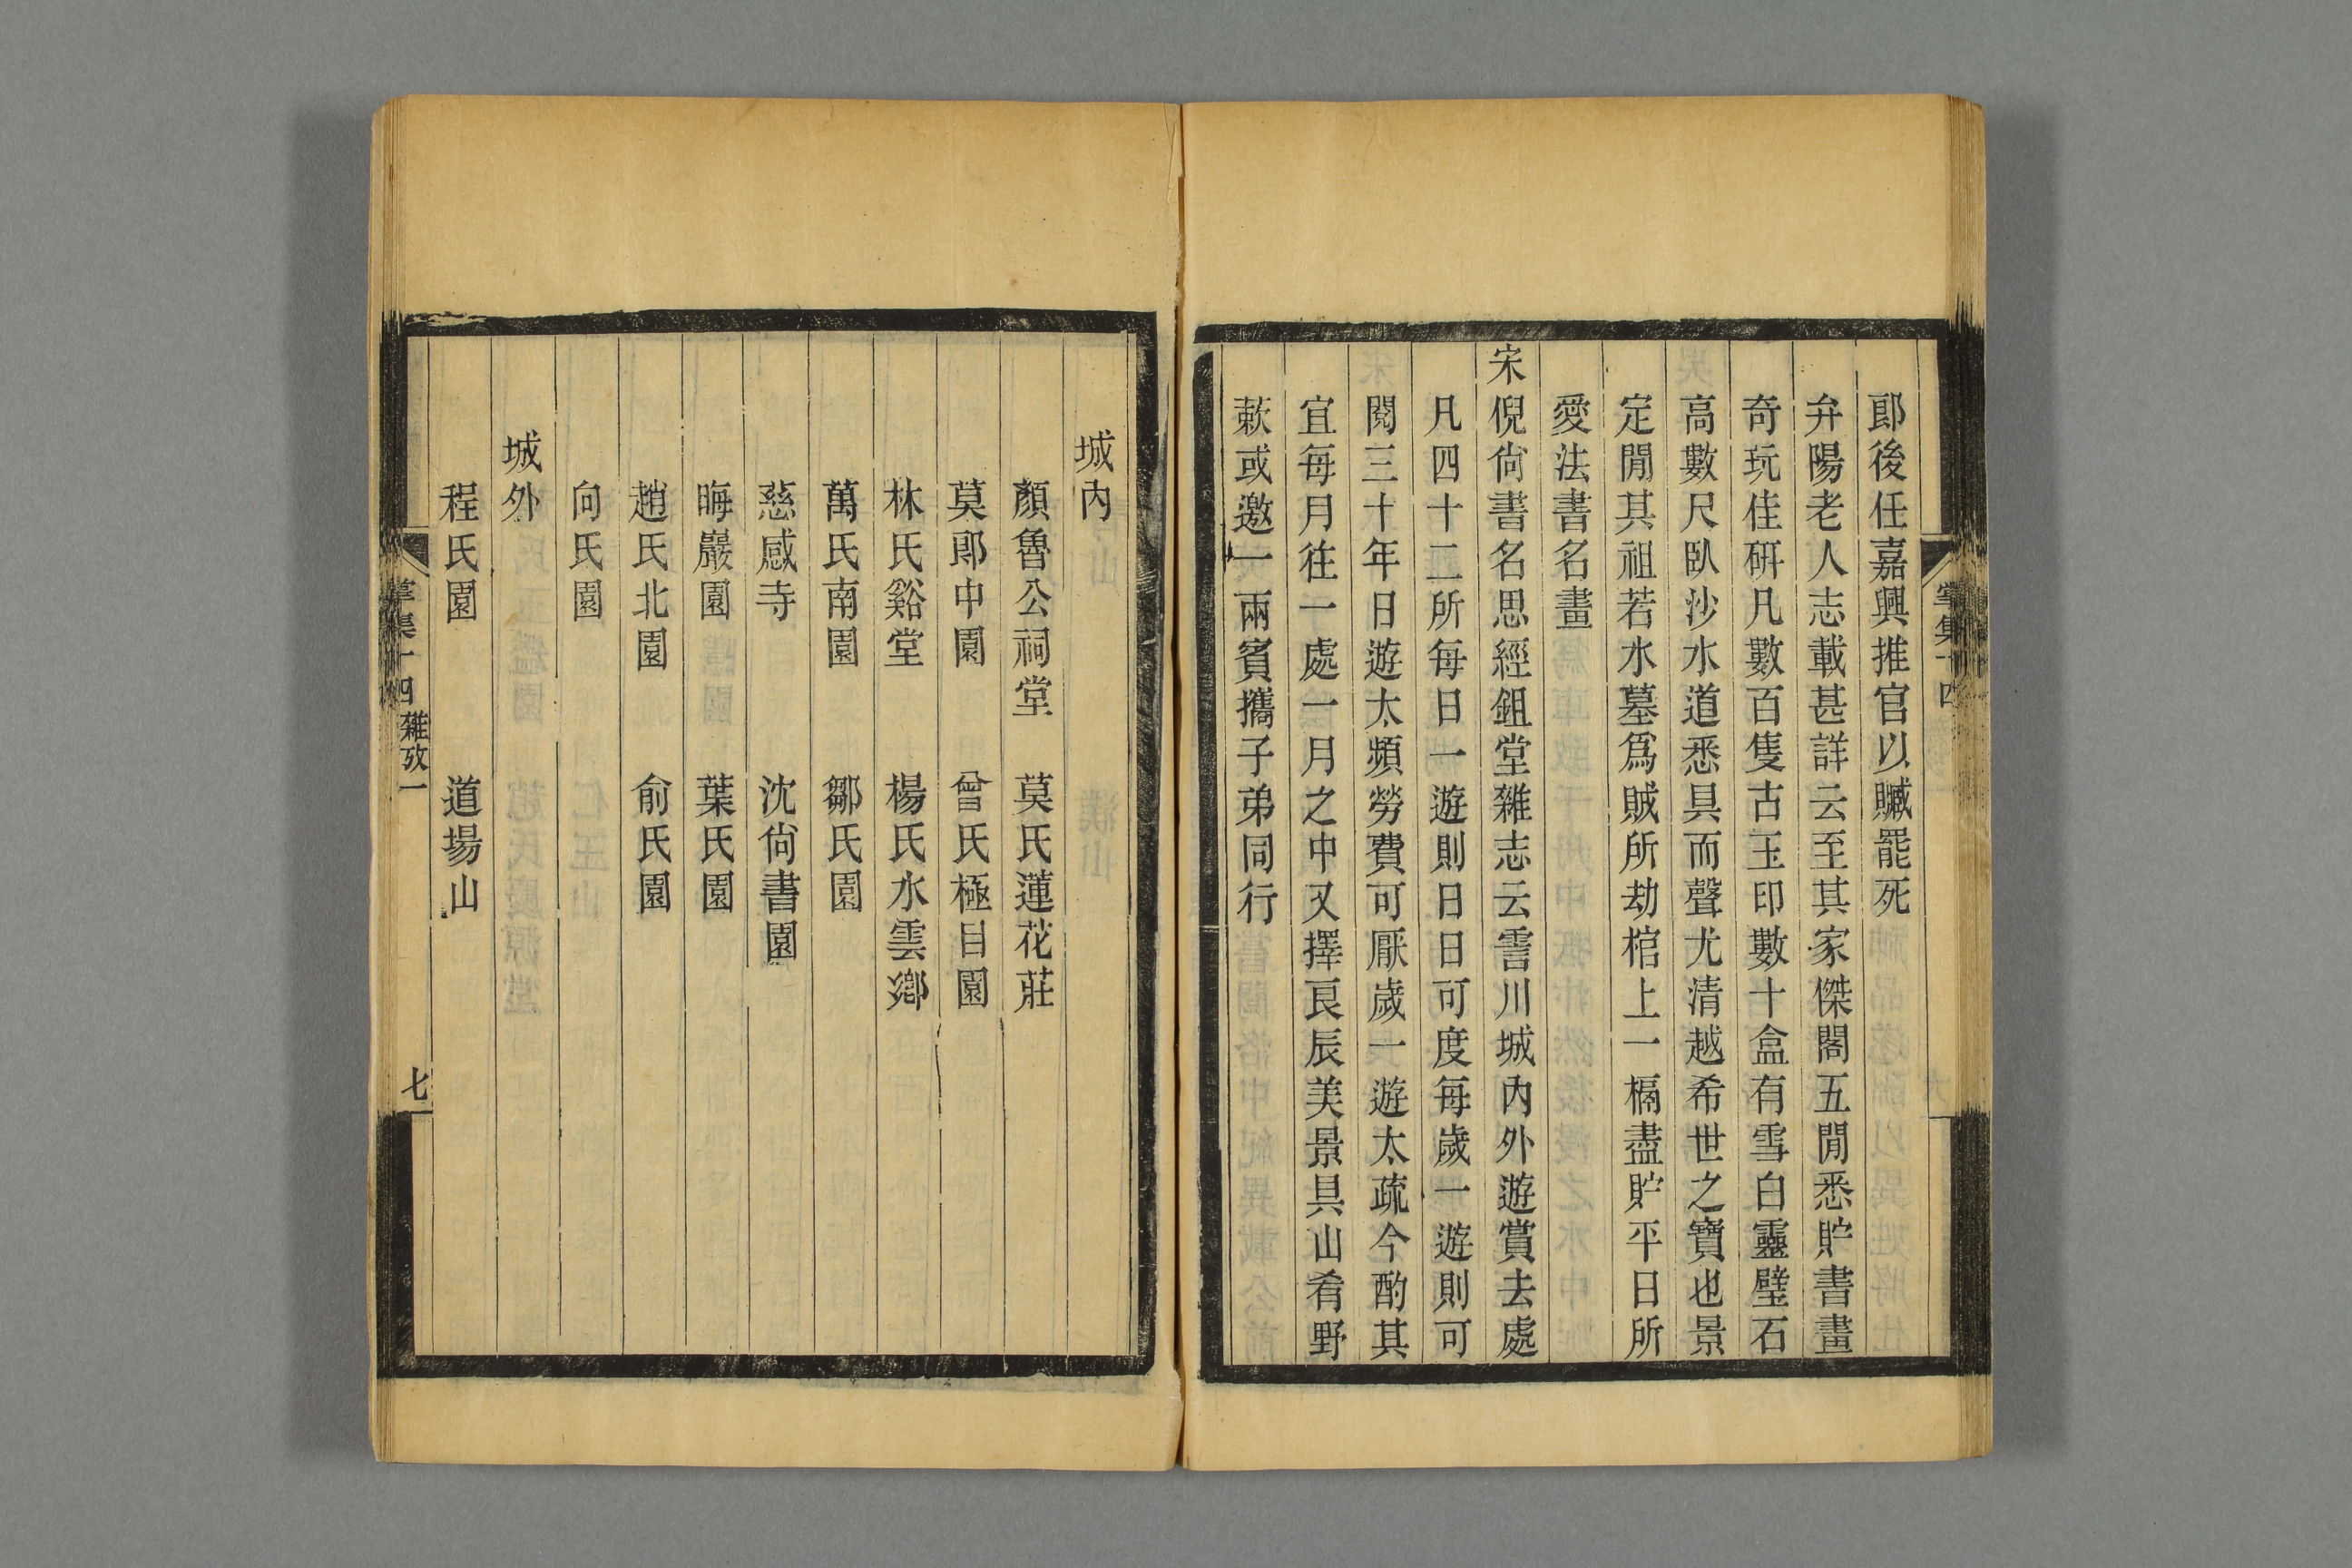 郎後任嘉興推官以贓罷死
弁陽老人志載甚詳云至其家傑閣五閒悉貯書畫
奇玩佳硏凡數百隻古玉印數十盒有雪白靈璧石
高數尺臥沙水道悉具而聲尤清越希世之寶也景
定閒其祖若水墓爲賊所劫棺上一槅盡貯平日所
愛法書名畫
宋倪尙書名思經鉏堂雜志云霅川城內外遊賞去處
凡四十二所每日一遊則日日可度每歲一遊則可
閱三十年日遊太頻勞費可厭歲一遊太疏今酌其
宜每月往一處一月之中又擇良辰美景具山肴野
蔌或邀一兩賓攜子弟同行
城內
顏魯公祠堂 莫氏蓮花莊
莫郎中園 曾氏極目園
林氏谿堂 楊氏水雲鄉
萬氏南園 鄒氏園
慈感寺 沈尙書園
晦巖園 葉氏園
趙氏北園 俞氏園
向氏園
城外
程氏園 道場山
集十四 雜攷一 七